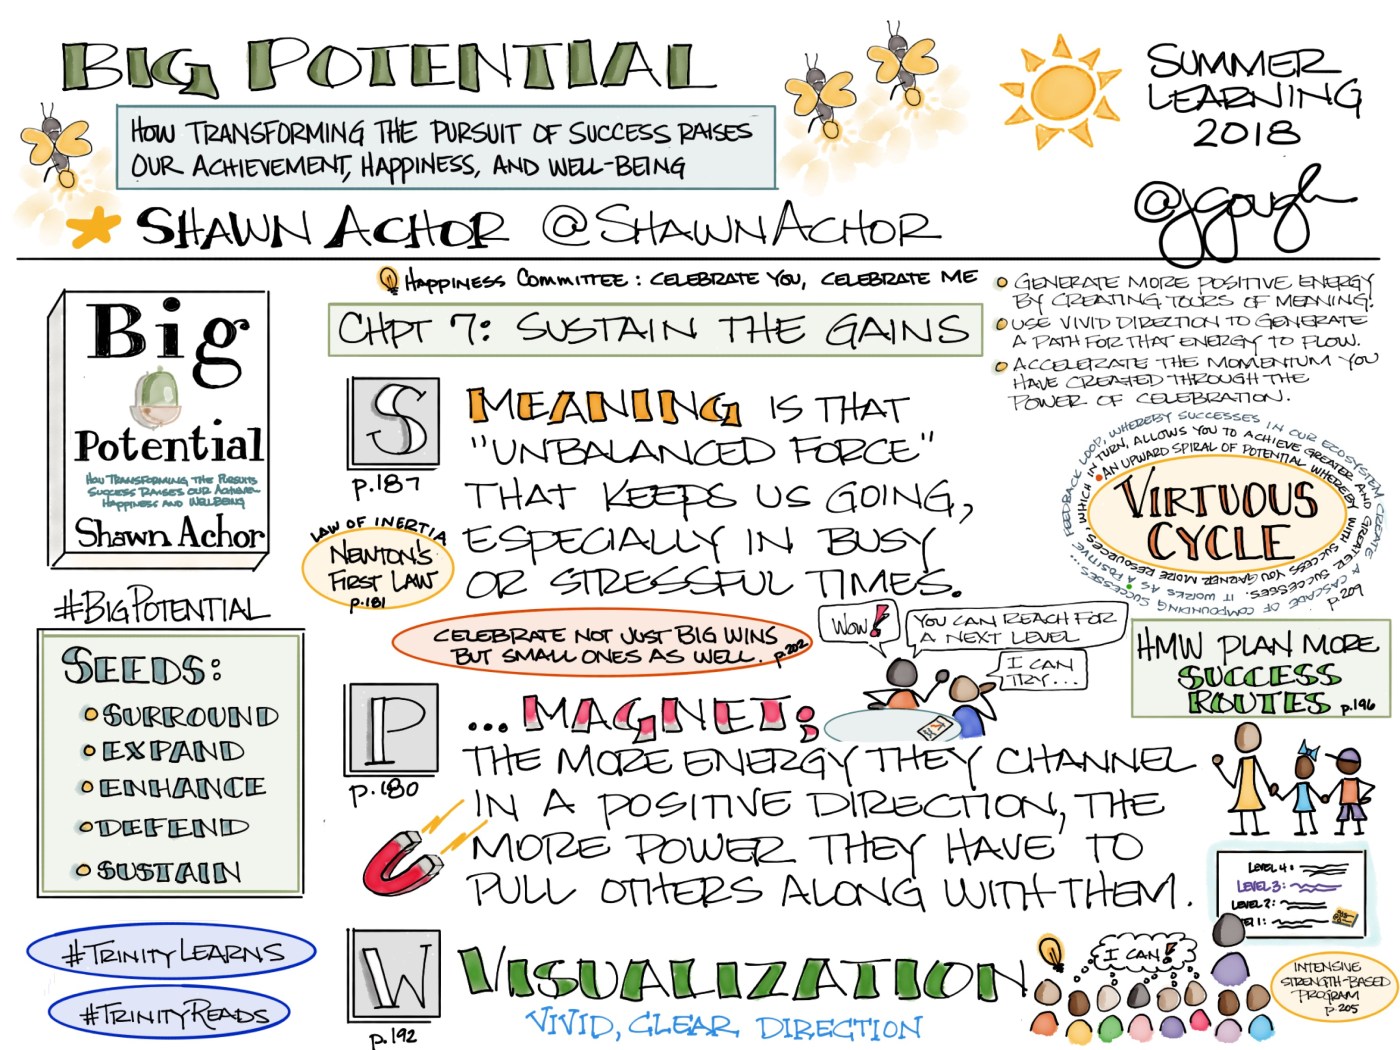 BIG POTENTIAL
HOW TRANSFORMING THE PURSUIT OF SUCCESS RAISES
OUR ACHIEVEMENT, HAPPINESS, AND WELL-BEING
SHAWN ACHOR @SHAWNACHOR
SUMMER
LEARNING
2018
@jgough
Big
Potential
HOW TRANSFORMING THE PURSUITS
SUCCESS RAISES OUR ACHIEVE-
HAPPINESS AND WELLBEING
Shawn Achor
#BIGPOTENTIAL
SEEDS:
SURROUND
EXPAND
ENHANCE
DEFEND
SUSTAIN
#TRINITYLEARNS
#TRINITYREADS
HAPPINESS COMMITTEE: CELEBRATE YOU, CELEBRATE ME
CHPT 7: SUSTAIN THE GAINS
S
p.187
MEANING IS THAT
"UNBALANCED FORCE"
THAT KEEPS US GOING,
ESPECIALLY IN BUSY
OR STRESSFUL TIMES.
LAW OF INERTIA
NEWTON'S
FIRST LAW
p.181
CELEBRATE NOT JUST BIG WINS
BUT SMALL ONES AS WELL. p.202
WOW!
YOU CAN REACH FOR
A NEXT LEVEL
I CAN
TRY...
P
p.180
... MAGNET;
THE MORE ENERGY THEY CHANNEL
IN A POSITIVE DIRECTION, THE
MORE POWER THEY HAVE TO
PULL OTHERS ALONG WITH THEM.
W
p.192
VISUALIZATION
VIVID, CLEAR DIRECTION
GENERATE MORE POSITIVE ENERGY
BY CREATING TOURS OF MEANING.
USE VIVID DIRECTION TO GENERATE
A PATH FOR THAT ENERGY TO FLOW.
ACCELERATE THE MOMENTUM YOU
HAVE CREATED THROUGH THE
POWER OF CELEBRATION.
VIRTUOUS
CYCLE
AN UPWARD SPIRAL OF POTENTIAL WHEREBY WITH SUCCESS YOU GARNER MORE RESOURCES, WHICH IN TURN, ALLOWS YOU TO ACHIEVE GREATER AND GREATER SUCCESSES. IT WORKS AS A POSITIVE FEEDBACK LOOP, WHEREBY SUCCESSES IN OUR ECOSYSTEM CREATE A CASCADE OF COMPOUNDING SUCCESSES...
p.209
HMW PLAN MORE
SUCCESS
ROUTES p.196
LEVEL 4:
LEVEL 3:
LEVEL 2:
I CAN!
INTENSIVE
STRENGTH-BASED
PROGRAM
p.205